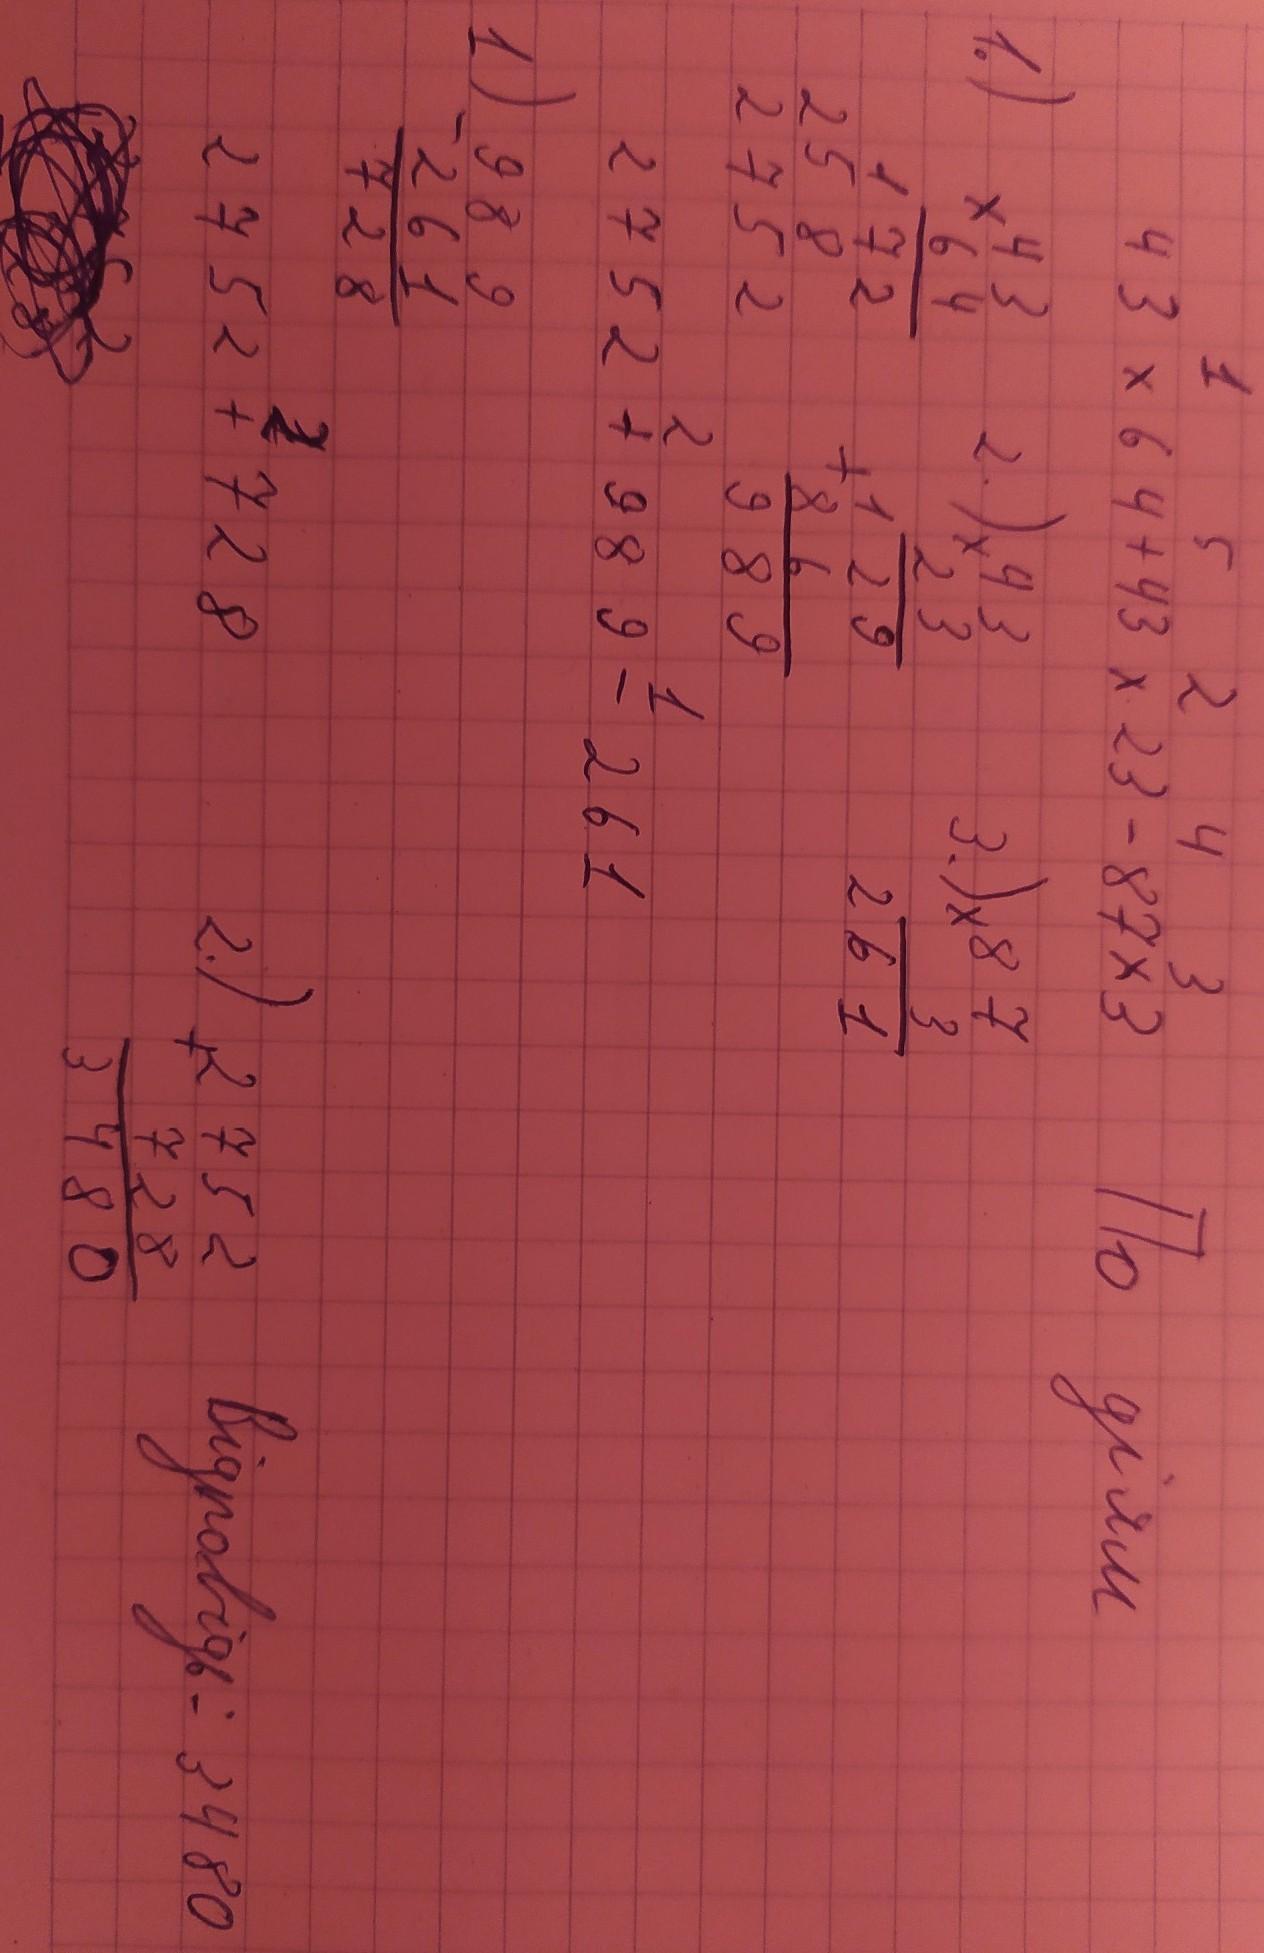 1 5 2 4 3
43 x 64 + 43 x 23 - 87 x 3 По діям
1.) x 43 2.) x 43 3.) x 87
64 23 3
172 + 129 261
258 86
2752 989
2 1
2752 + 989 - 261
1) - 989
261
728
2752 + 728 2.) + 2752
728
3480
Відповідь: 3480